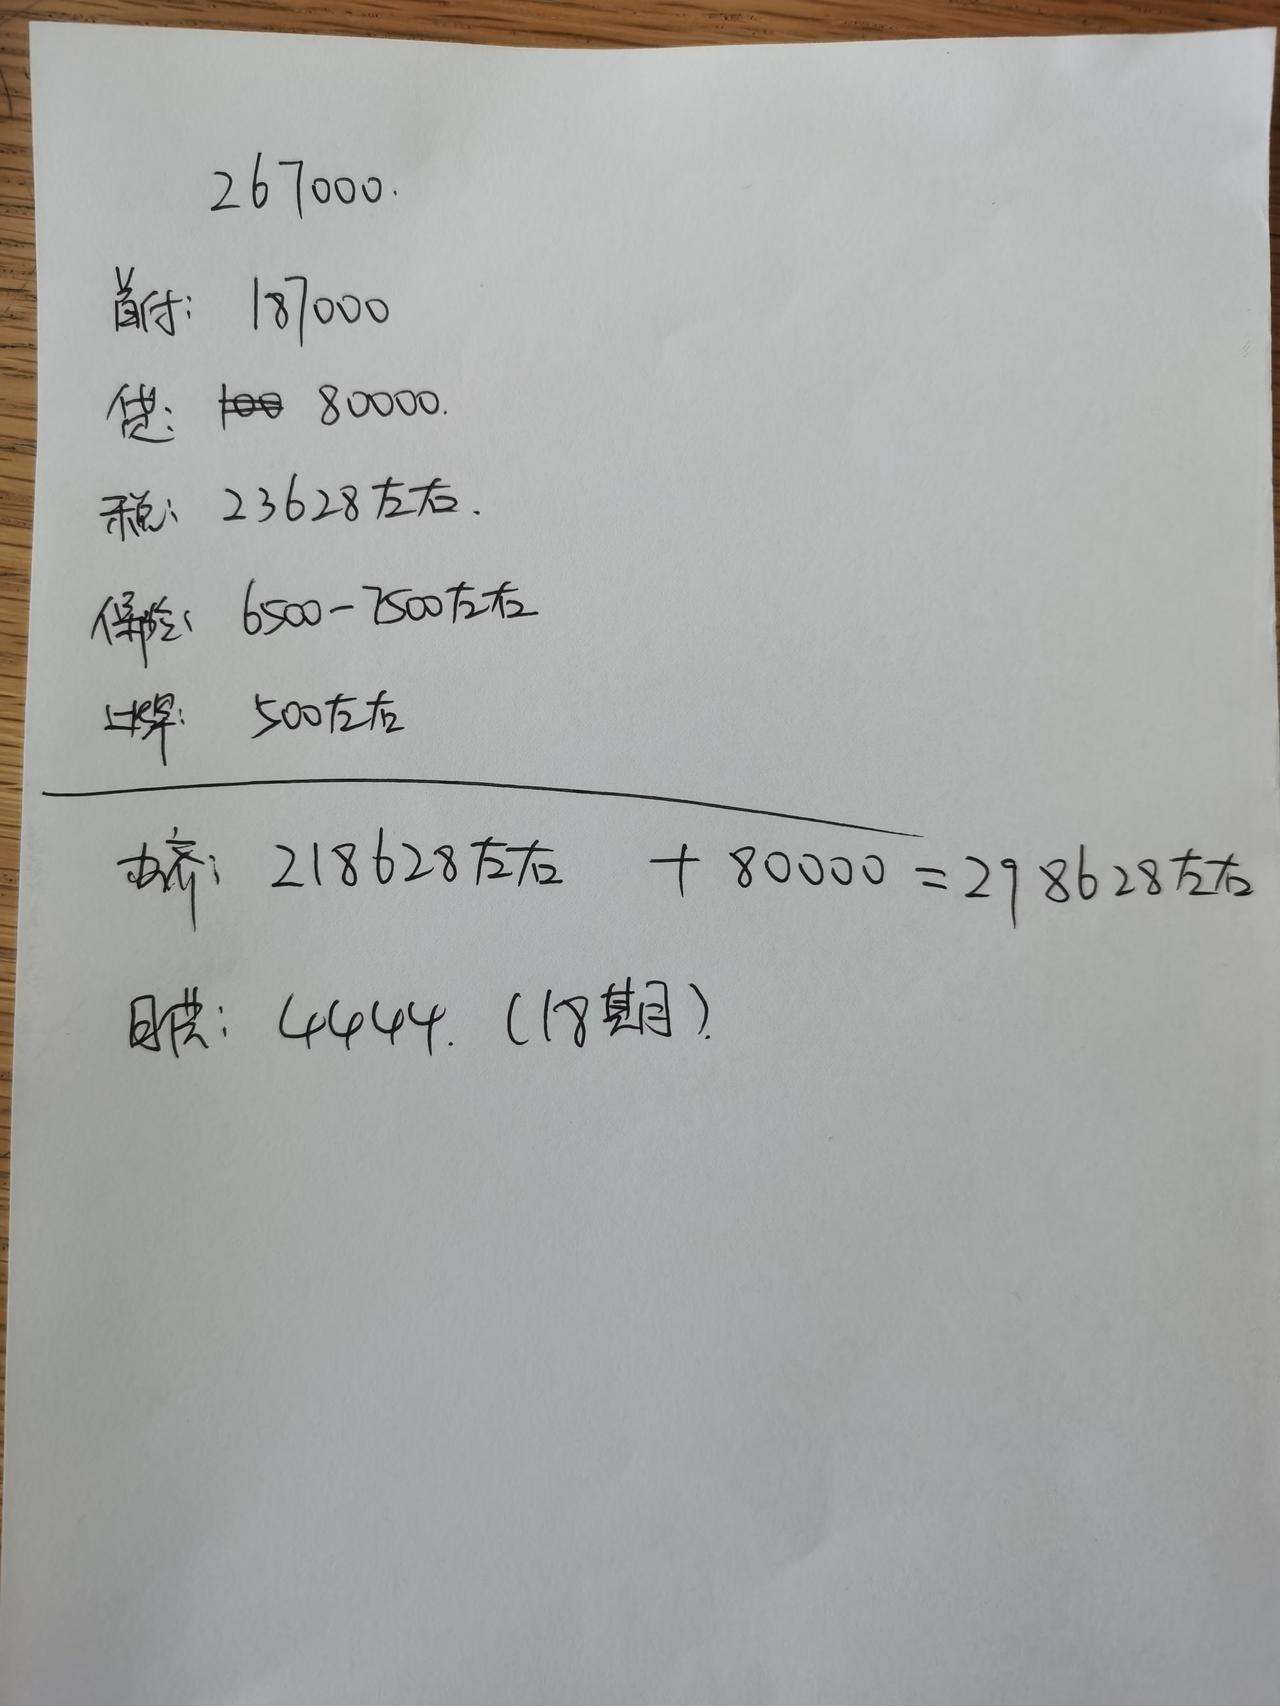 267000.
首付: 187000
贷: 100 80000.
税: 23628左右.
保险: 6500-7500左右
上牌: 500左右
办齐: 218628左右 + 80000=298628左右
月供: 4444. (18期).